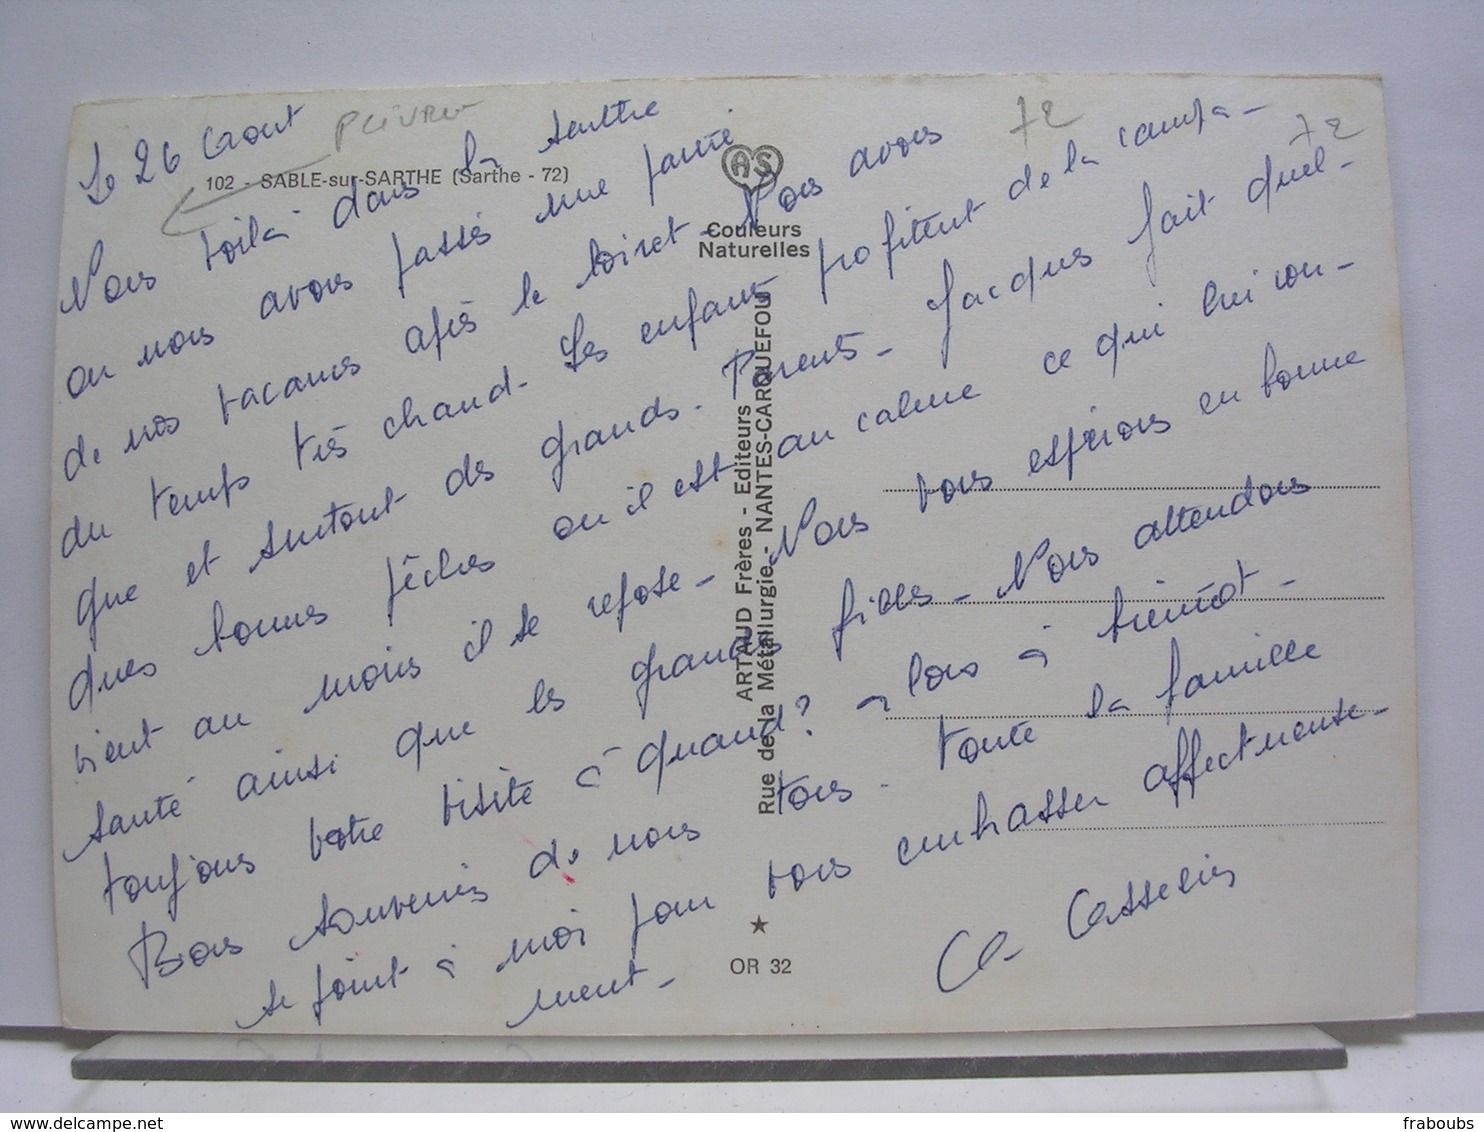 Le 26 Août
102 - SABLE-sur-SARTHE (Sarthe - 72)
72
72
AS
Couleurs
Naturelles
Nous voilà dans la sarthe
ou nous avons passés une partie
de nos vacances après le loiret - Nous avons
du temps très chaud - Les enfants profitent de la campa-
gne et surtout des grands - Parents - Jacques fait quel-
ques bonnes pêches ou il est au calme ce qui lui con-
vient au moins il se repose - Nous vous espérons en bonne
santé ainsi que les grandes filles - Nous attendons
toujours votre visite à quand? alors à bientôt -
Bons souvenirs de nous tous - toute la famille
se joint à moi pour vous embrasser affectueuse-
ment -
ARTAUD Frères - Editeurs
Rue de la Métallurgie - NANTES-CARQUEFOU
★
OR 32
delcampe.net
fraboubs